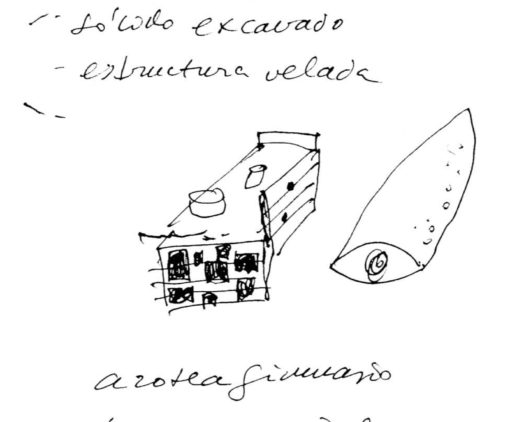 - sólido excavado
- estructura velada
azotea gimnasio